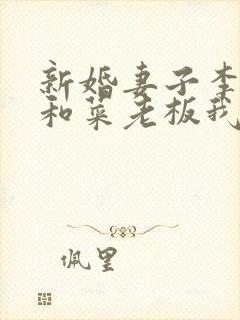 新婚妻子李
和菜老板我
佩里